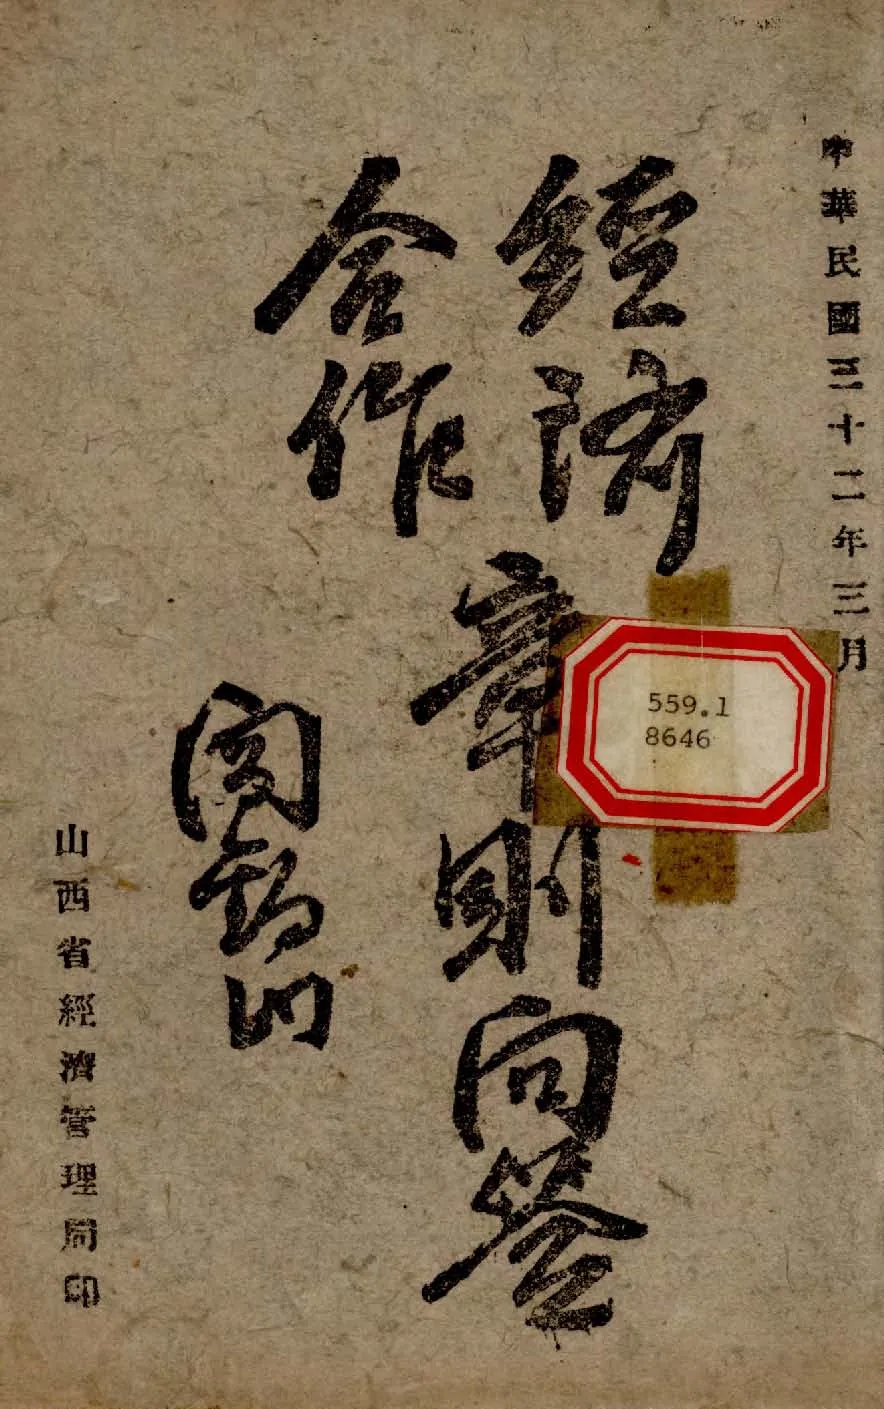 中華民國三十二年三月
經濟
合作
章則問答
閻錫山
山西省經濟管理局印
559.1
8646